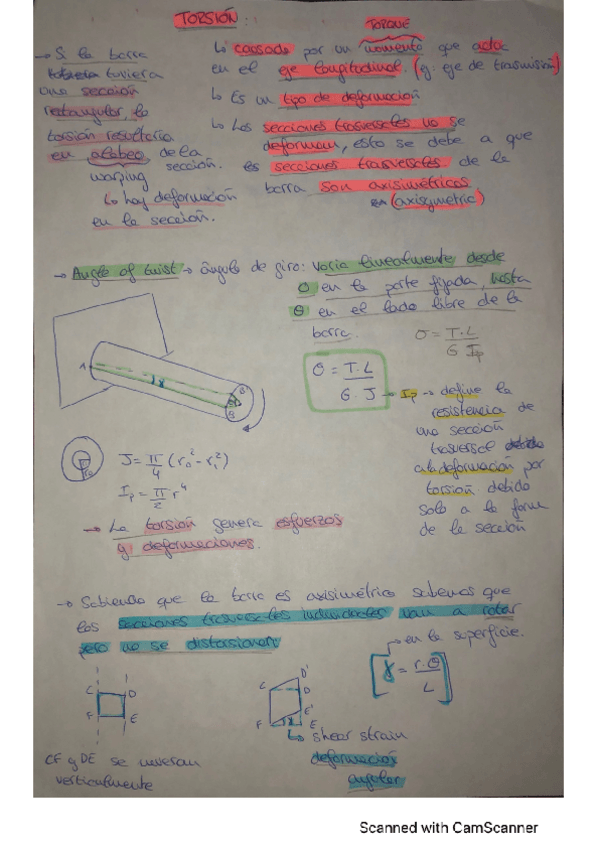 TORSIÓN:
TORQUE
↳ causado por un momento que actúa
en el eje longitudinal. (eg: eje de trasmisión)
↳ Es un tipo de deformación
↳ Las secciones trasversales no se
deforman, esto se debe a que
las secciones trasversales de la
barra son axisimétricas.
(axisymetric)
→ Si la barra
tuviera
una sección
rectangular, la
torsión resultaría
en alabeo de la
sección.
warping
↳ hay deformación
en la sección.
→ Angle of twist → ángulo de giro: varía linealmente desde
0 en la parte fijada, hasta
θ en el lado libre de la
barra.
θ = T·L / G Ip
θ = T·L / G·J
→ Ip → define la
resistencia de
una sección
trasversal
a la deformación por
torsión debido
solo a la forma
de la sección
A
γ
B
B'
J = π/4 (r₀² - r₁²)
Ip = π/2 r⁴
→ La torsión genera esfuerzos
y deformaciones.
→ Sabiendo que la barra es axisimétrica sabemos que
las secciones trasversales individuales van a rotar
pero no se distorsionan
→ en la superficie.
[γ = r·θ / L]
C D
F E
C D' D
F E' E
γ
↳ shear strain
deformación
angular
CF y DE se
verticalmente
Scanned with CamScanner